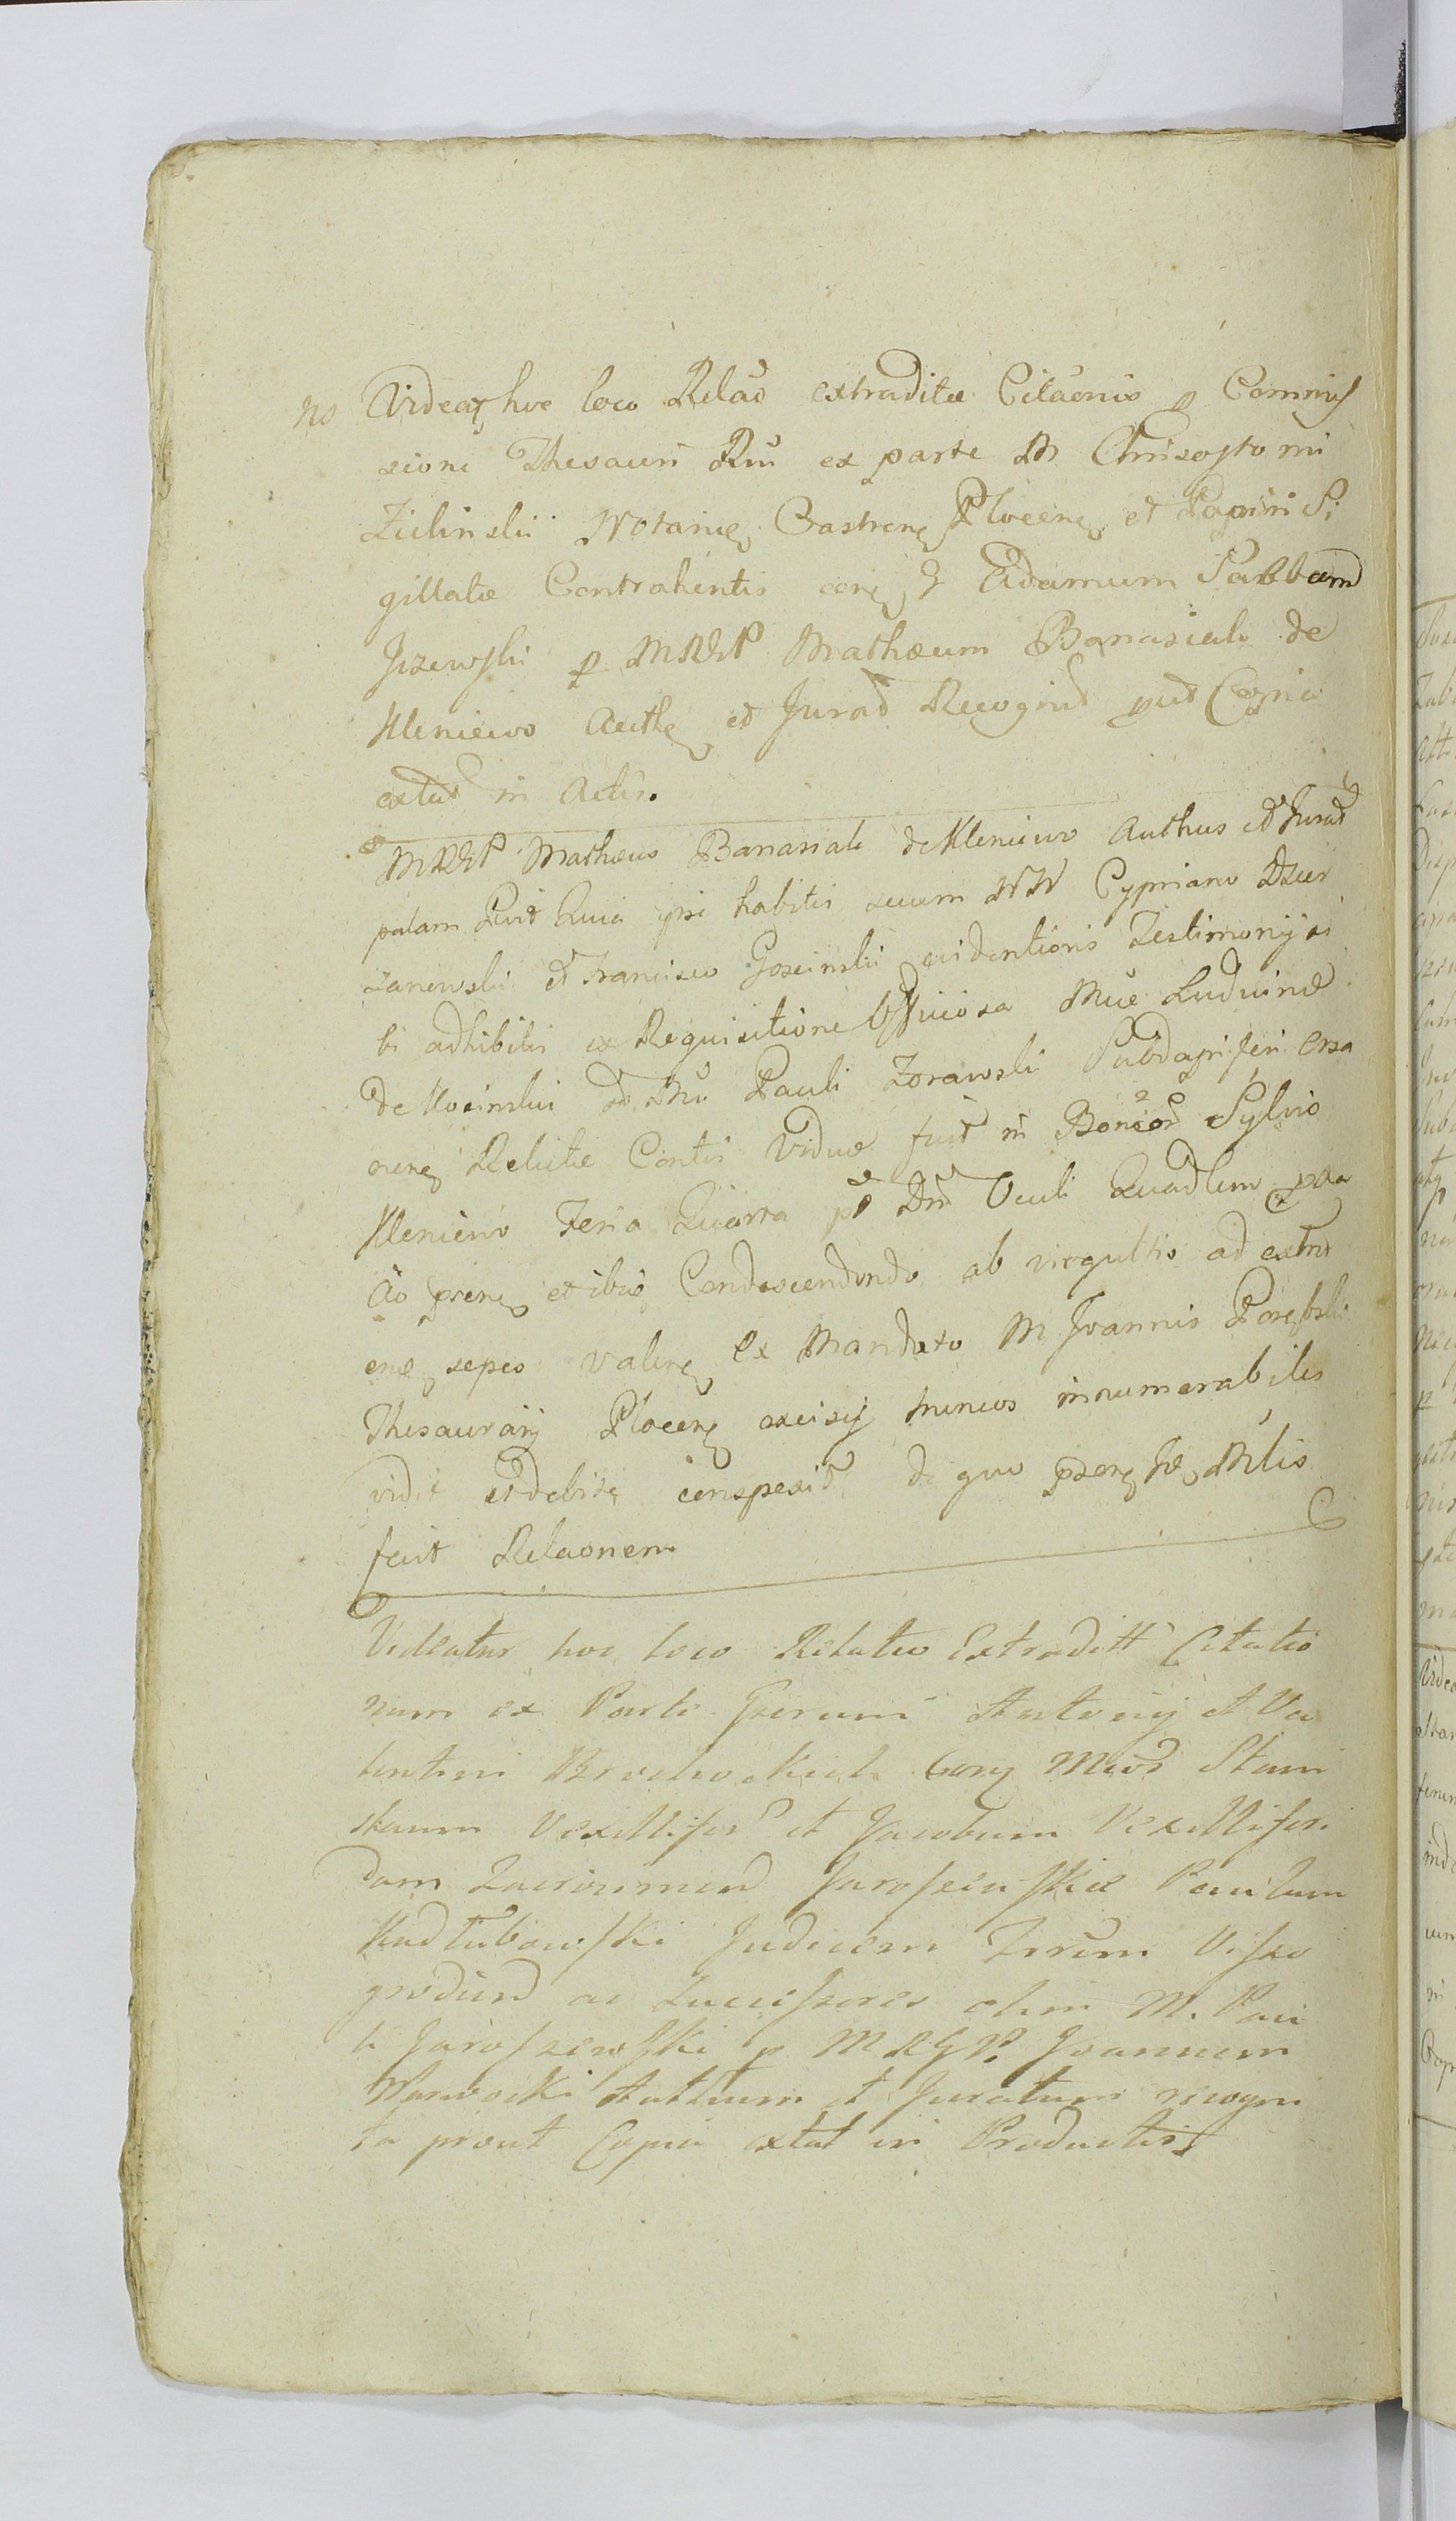 no Videat hoc loco Relao extraditae Citaonis p Commis
sioni Thesauri Rni ex parte M Chrisostomi
Zielinskii Notarii Castren Plocen et Papiri Si
gillatae Contrahentis cone G Adamum Sabbam
Jezewski p MRGP Mathaeum Banasiak de
Kleniewo Authe et Jurad Recognit put Copia
extat in Actis.
MRGP Mathaeus Banasiak de Kleniewo Authus et Jurat
palam Quia ipse habitis secum NN Cypriano Dzier
zanowski et Francisco Goscinski evidentioris Testimonij si
bi adhibitis ex Requisitione Officiosa Mcae Ludvinae
de Kosinskii Pauli Zorawski Subdapiferi
Relictae Contis Viduae fuit in Bonis Sylvis
Kleniewo Feria Quarta pt Dni Oculi Quadlem pxa
Ao prene et ibiq Condescendendo ab virgultis ad extre
sepes ex Mandato M Joannis Porębski
Thesaurarij Plocen excisij truncos innumerabiles
vidit et debite conspexit de quo praens Mlis
fecit Relaonem
Videatur hoc loco Relatio Extraditt Citatio
num ex Parte Gnerum Antonij et Va
lentini Cong Mcos Stani
slaum Vexilliferd et Jacobum Vexilliferi
dam Zacrocimend Jaroszewskie Paulum
Kadłubowski Judicem Terrum Visso
grodiend ac Successores olim M. Pau
li Jaroszewski p MRGP. Joannem
Authum et Juratum recogni
ta prout Copia extat in Productis